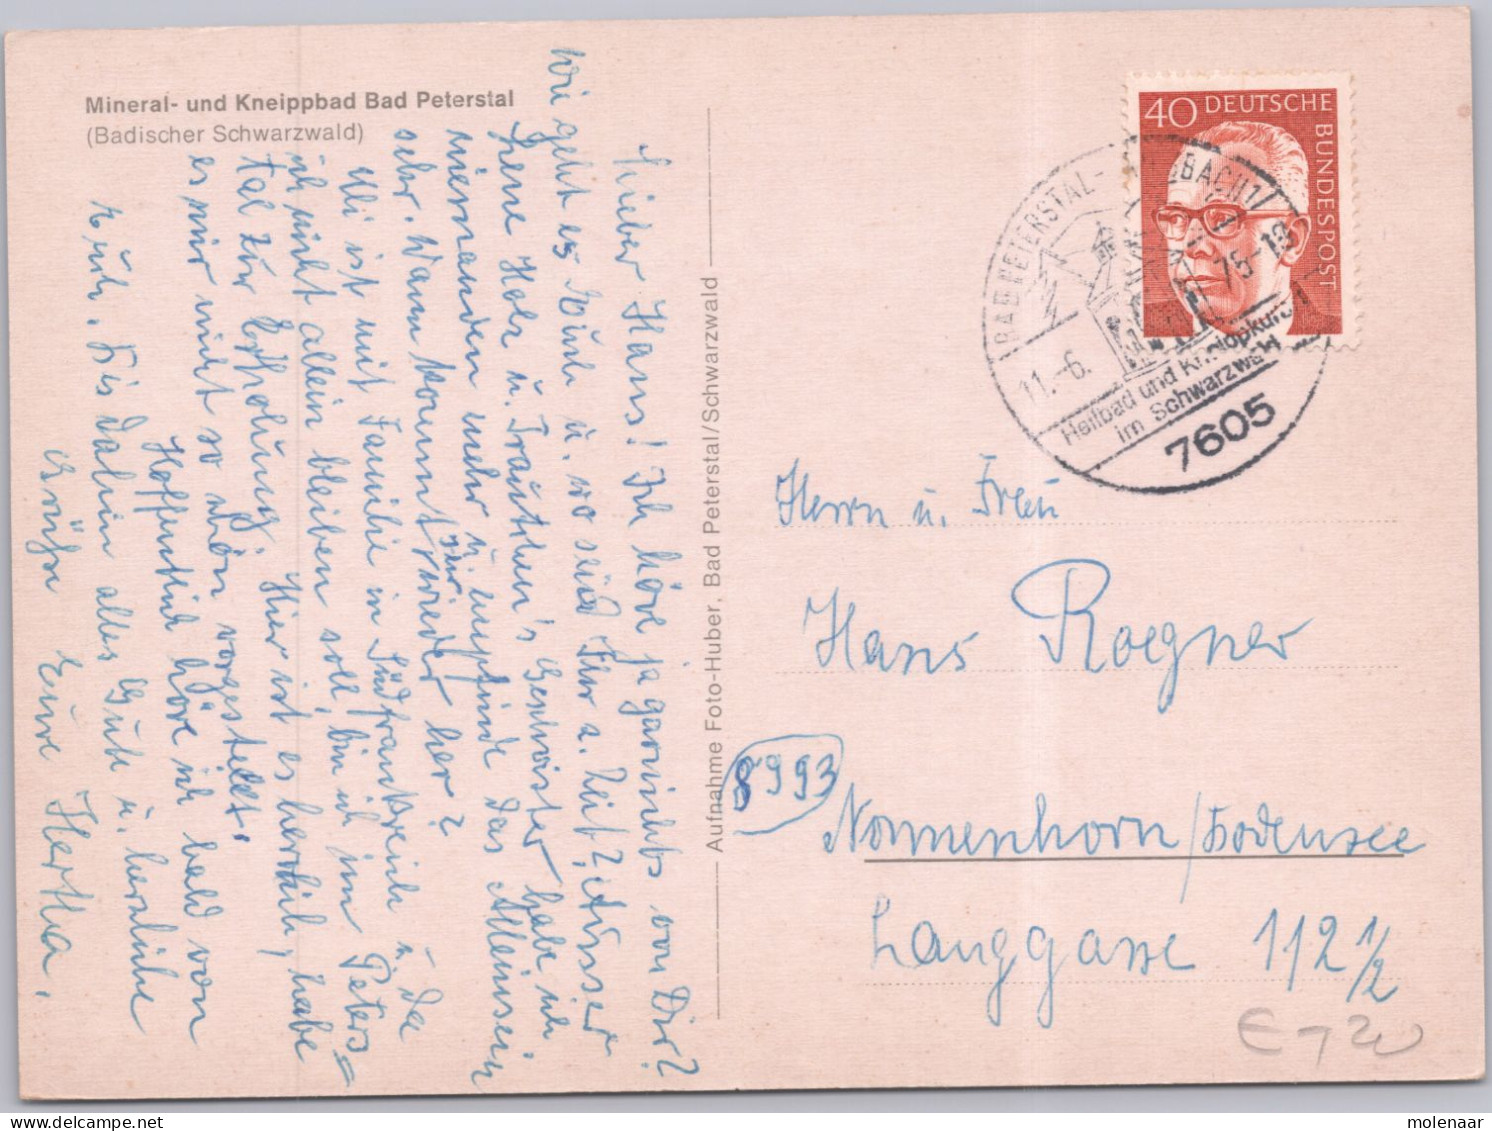 Mineral- und Kneippbad Bad Peterstal
(Badischer Schwarzwald)
Lieber Hans! Ich höre ja garnichts von Dir?
Wie geht es Euch u. wo seid Ihr z. Zeit? Ausser
Lene Holz u. Trautchen's Geschwister habe ich
niemanden mehr u. empfinde das Alleinsein
sehr. Wann kommt Ihr wieder her?
Uli ist mit Familie in Südfrankreich u. da
ich nicht allein bleiben soll, bin ich im Peters=
tal zur Erholung. Hier ist es herrlich, habe
es mir nicht so schön vorgestellt.
Hoffentlich höre ich bald von
Euch. Bis dahin alles Gute u. herzliche
Grüße Eure Hertha.
Aufnahme Foto-Huber, Bad Peterstal/Schwarzwald
40 DEUTSCHE BUNDESPOST
BAD PETERSTAL-
11.-6. 75-18
Heilbad und Kneippkurort
im Schwarzwald
7605
Herrn u. Frau
Hans Roegner
8993
Nonnenhorn/Bodensee
Langgasse 112 1/2
molenaar